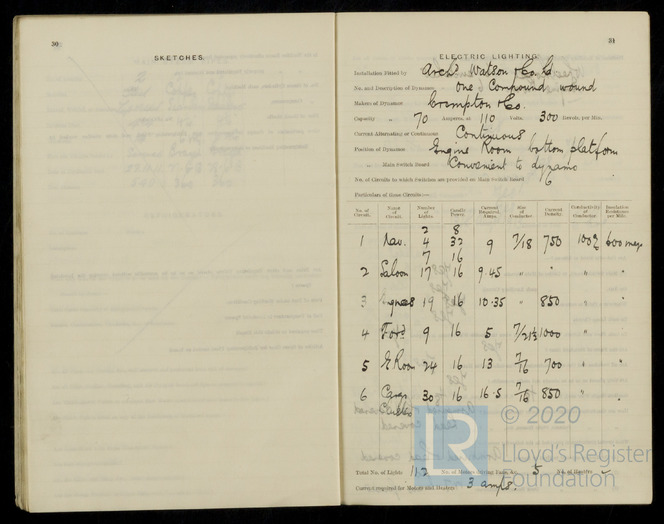 30
SKETCHES.
31
ELECTRIC LIGHTING.
Installation Fitted by Archd Watson & Co. Ld
No. and Description of Dynamos One Compound wound
Makers of Dynamos Crompton & Co.
Capacity " 70 Amperes, at 110 Volts, 300 Revols. per Min.
Current Alternating or Continuous Continuous
Position of Dynamos Engine Room bottom platform
" Main Switch Board Convenient to dynamo
No. of Circuits to which Switches are provided on Main Switch Board 6
Particulars of these Circuits:—
No. of Circuit. Name of Circuit. Number of Lights. Candle Power. Current Required. Amps. Size of Conductor. Current Density. Conductivity of Conductor. Insulation Resistance per Mile.
2 8
1 Nav. 4 32 9 7/18 750 100% 600 megs
7 16
2 Saloon 17 16 9.45 " " " "
3 19 16 10.35 " 850 " "
4 Ford 9 16 5 7/21½ 1000 " "
5 E Room 24 16 13 7/16 700 " "
6 Cargo 30 16 16.5 7/16 850 " "
Clusters
Total No. of Lights 112 No. of Motors driving Fans, &c. 5 No. of Heaters
Current required for Motors and Heaters 3 amps.
© 2020
LR
Lloyd's Register
Foundation